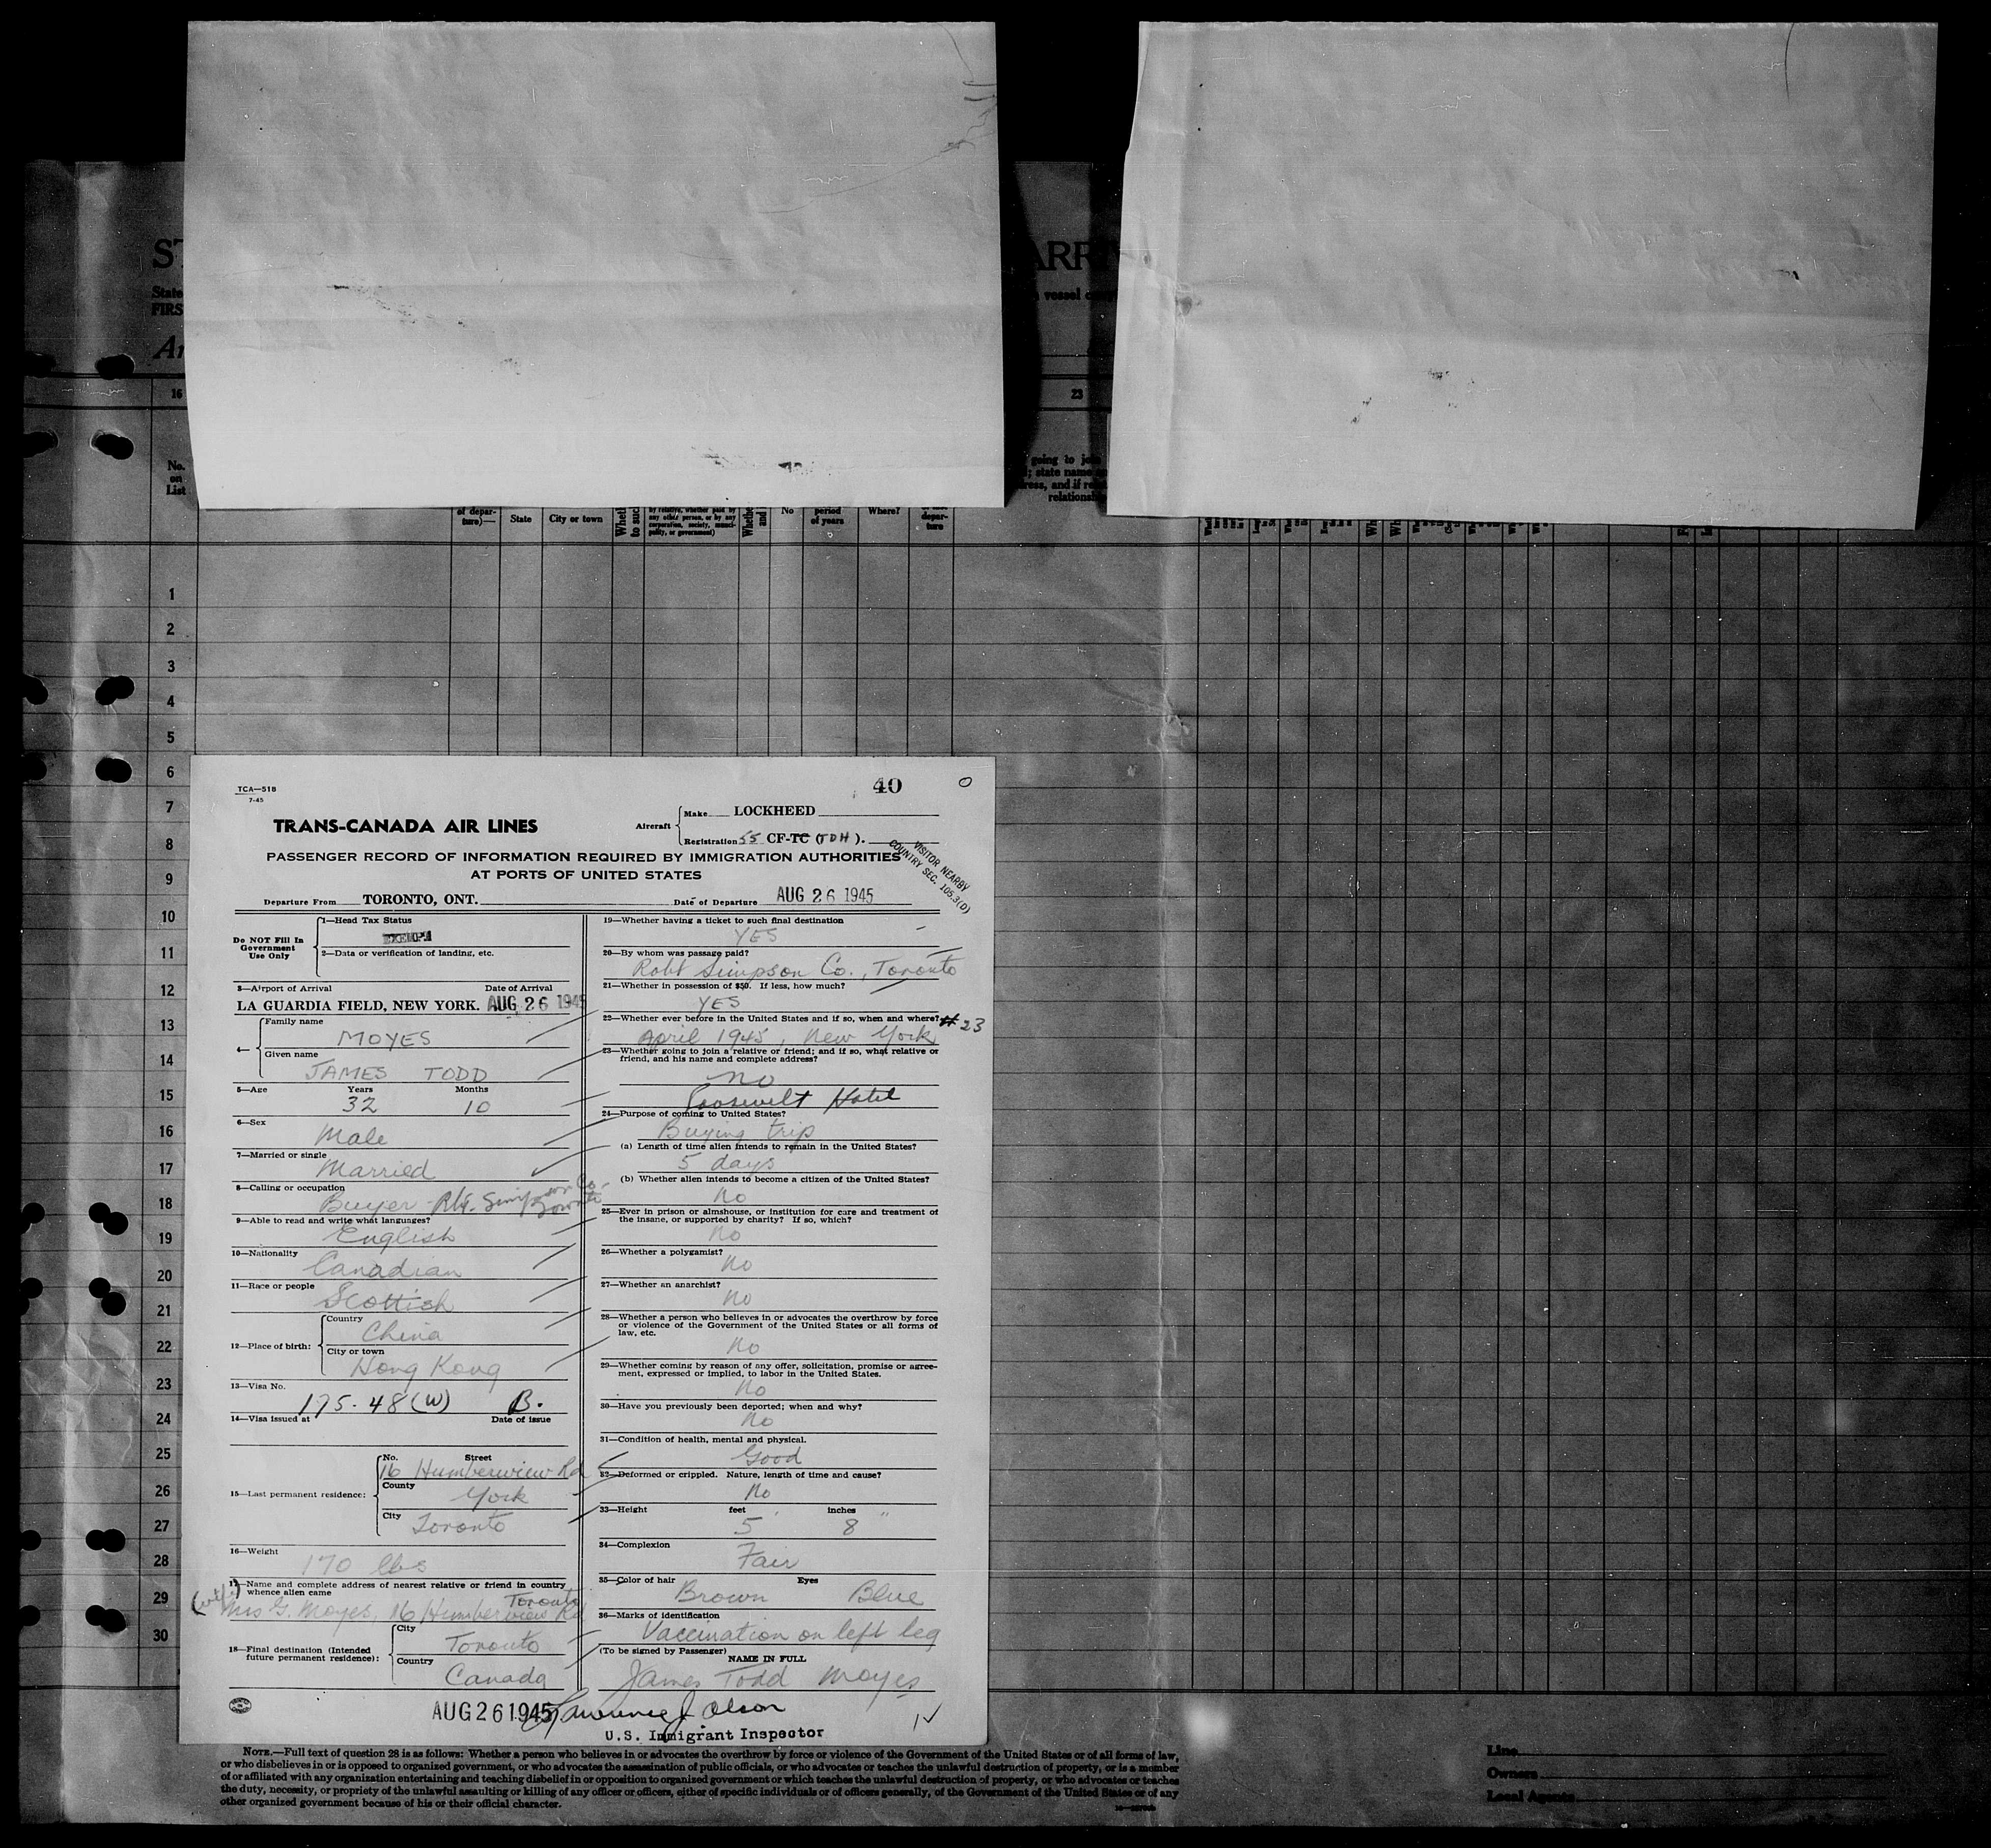 ST
ARR
State
FIRS
vessel
Ar
16
23
No.
on
List
going to joi
; state name
ress, and if re
relationsh
of depar-
ture)—
State
City or town
Whet
to suc
by relative, whether paid by
any other person, or by any
corporation, society, munici-
pality, or government)
Whethe
and
No
period
of years
Where?
depar-
ture
1
2
3
4
5
6
7
8
9
10
11
12
13
14
15
16
17
18
19
20
21
22
23
24
25
26
27
28
29
30
TCA—518
7-45
40
TRANS-CANADA AIR LINES
Aircraft
Make LOCKHEED
Registration 55 CF-TC (TDH).
PASSENGER RECORD OF INFORMATION REQUIRED BY IMMIGRATION AUTHORITIES
AT PORTS OF UNITED STATES
VISITOR NEARBY
COUNTRY SEC. 105.3(D)
Departure From TORONTO, ONT. Date of Departure AUG 26 1945
Do NOT Fill In
Government
Use Only
1—Head Tax Status
EXEMPT
2—Data or verification of landing, etc.
3—Airport of Arrival Date of Arrival
LA GUARDIA FIELD, NEW YORK. AUG 26 1945
4—
Family name
MOYES
Given name
JAMES TODD
5—Age Years Months
32 10
6—Sex
Male
7—Married or single
Married
8—Calling or occupation
Buyer - Rbt. Simpson Co.
Toronto
9—Able to read and write what languages?
English
10—Nationality
Canadian
11—Race or people
Scottish
12—Place of birth:
Country
China
City or town
Hong Kong
13—Visa No.
175-48 (W) B.
14—Visa issued at Date of issue
15—Last permanent residence:
No. Street
16 Humberview Rd
County
York
City
Toronto
16—Weight
170 lbs
17—Name and complete address of nearest relative or friend in country
whence alien came
Toronto
Mrs G. Moyes, 16 Humberview Rd
18—Final destination (Intended
future permanent residence):
City
Toronto
Country
Canada
19—Whether having a ticket to such final destination
YES
20—By whom was passage paid?
Robt Simpson Co., Toronto
21—Whether in possession of $50. If less, how much?
YES
22—Whether ever before in the United States and if so, when and where? # 23
April 1945, New York
23—Whether going to join a relative or friend; and if so, what relative or
friend, and his name and complete address?
no
Roosevelt Hotel
24—Purpose of coming to United States?
Buying trip
(a) Length of time alien intends to remain in the United States?
5 days
(b) Whether alien intends to become a citizen of the United States?
No
25—Ever in prison or almshouse, or institution for care and treatment of
the insane, or supported by charity? If so, which?
No
26—Whether a polygamist?
No
27—Whether an anarchist?
No
28—Whether a person who believes in or advocates the overthrow by force
or violence of the Government of the United States or all forms of
law, etc.
No
29—Whether coming by reason of any offer, solicitation, promise or agree-
ment, expressed or implied, to labor in the United States.
No
30—Have you previously been deported; when and why?
No
31—Condition of health, mental and physical.
Good
32—Deformed or crippled. Nature, length of time and cause?
No
33—Height feet inches
5' 8"
34—Complexion
Fair
35—Color of hair Eyes
Brown Blue
36—Marks of identification
Vaccination on left leg
(To be signed by Passenger)
NAME IN FULL
James Todd Moyes
AUG 26 1945 Lawrence J. Olson
U.S. Immigrant Inspector
NOTE.—Full text of question 28 is as follows: Whether a person who believes in or advocates the overthrow by force or violence of the Government of the United States or of all forms of law,
or who disbelieves in or is opposed to organized government, or who advocates the assassination of public officials, or who advocates or teaches the unlawful destruction of property, or is a member
of or affiliated with any organization entertaining and teaching disbelief in or opposition to organized government or which teaches the unlawful destruction of property, or who advocates or teaches
the duty, necessity, or propriety of the unlawful assaulting or killing of any officer or officers, either of specific individuals or of officers generally, of the Government of the United States or of any
other organized government because of his or their official character.
Line
Owners
Local Agents